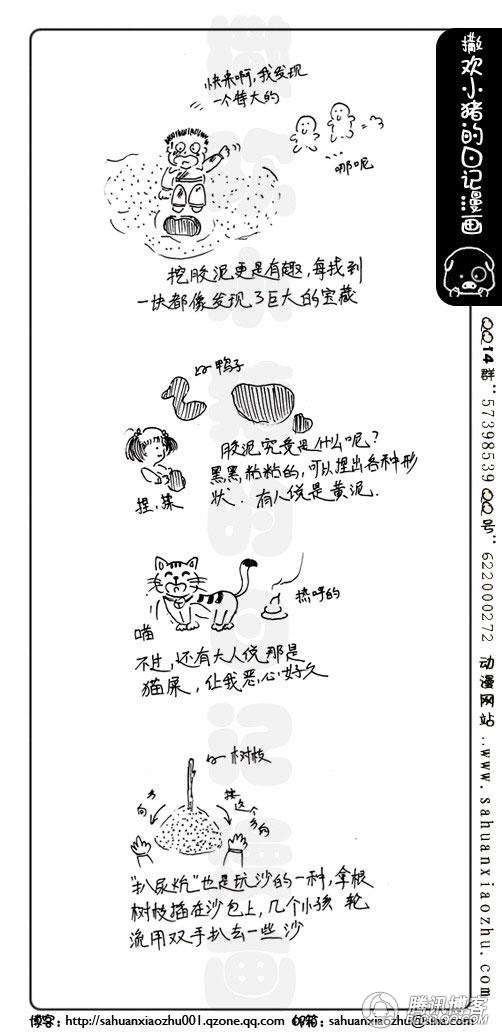 撒欢小猪的日记漫画
快来啊,我发现
一个特大的
哪呢
挖胶泥更是有趣,每找到
一块都像发现了巨大的宝藏
鸭子
捏,揉
胶泥究竟是什么呢?
黑黑粘粘的,可以捏出各种形
状.有人说是黄泥.
喵
热呼的
不过,还有大人说那是
猫屎,让我恶心好久
树枝
方向
按这个方向
"扒尿炕"也是玩沙的一种,拿根
树枝插在沙包上,几个小孩 轮
流用双手扒去一些沙
QQ14群:57398539 QQ号:622000272 动漫网站:www.sahuanxiaozhu.com
腾讯博客
博客:http://sahuanxiaozhu001.qzone.qq.com 邮箱:sahuanxiaozhu@sina.com